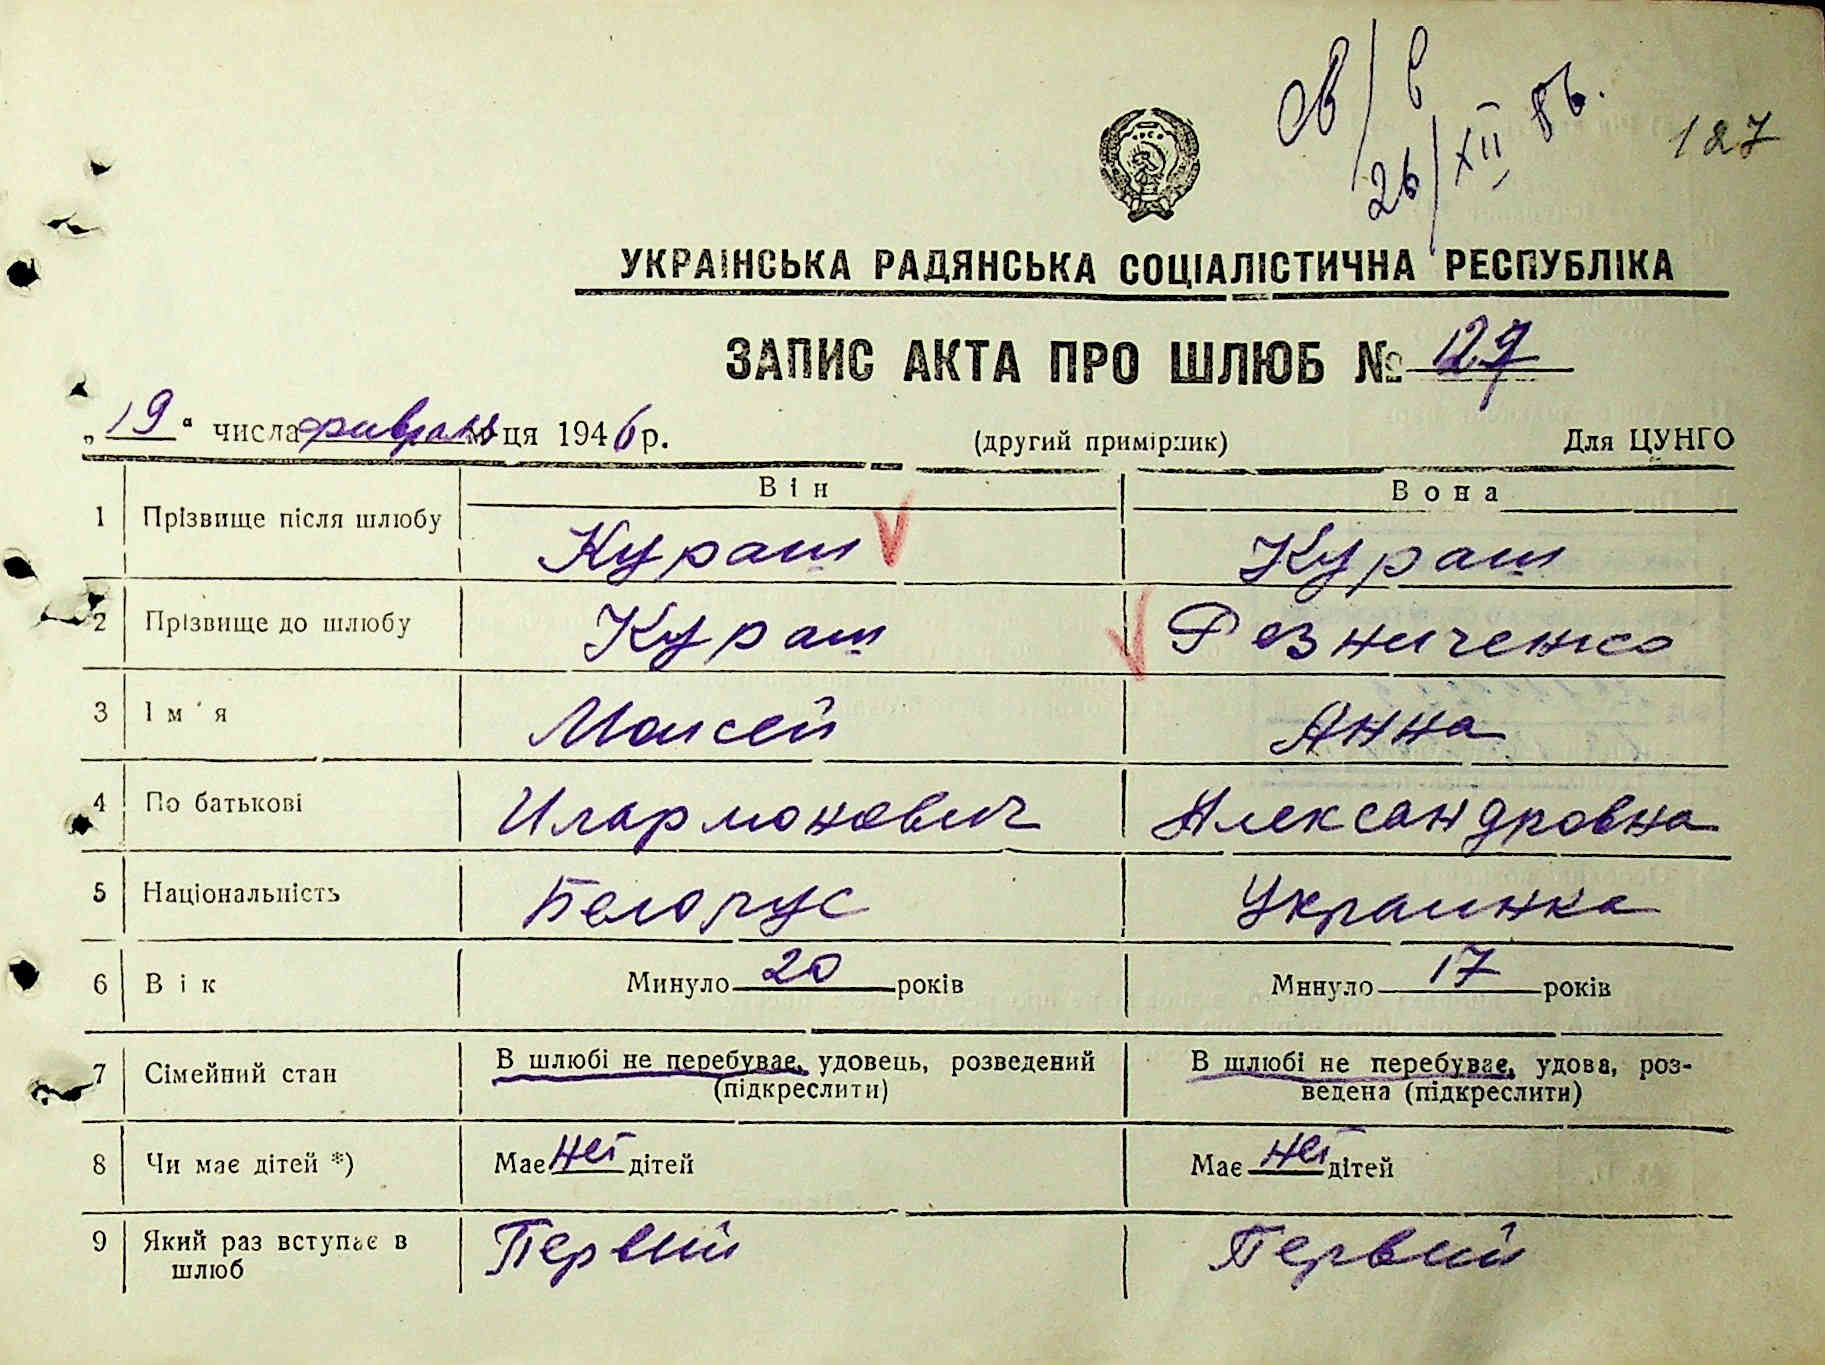 св/в
26/XII 86.
127
УКРАЇНСЬКА РАДЯНСЬКА СОЦІАЛІСТИЧНА РЕСПУБЛІКА
ЗАПИС АКТА ПРО ШЛЮБ № 127
„19“ числа февраля м-ця 1946 р. (другий примірник) Для ЦУНГО
Він Вона
1 Прізвище після шлюбу Кураш Кураш
2 Прізвище до шлюбу Кураш Резниченко
3 Ім'я Моисей Анна
4 По батькові Иларионович Александровна
5 Національність Белорус Украинка
6 Вік Минуло 20 років Минуло 17 років
7 Сімейний стан В шлюбі не перебуває, удовець, розведений В шлюбі не перебуває, удова, роз-
(підкреслити) ведена (підкреслити)
8 Чи має дітей *) Має нет дітей Має нет дітей
9 Який раз вступає в Первый Первый
шлюб